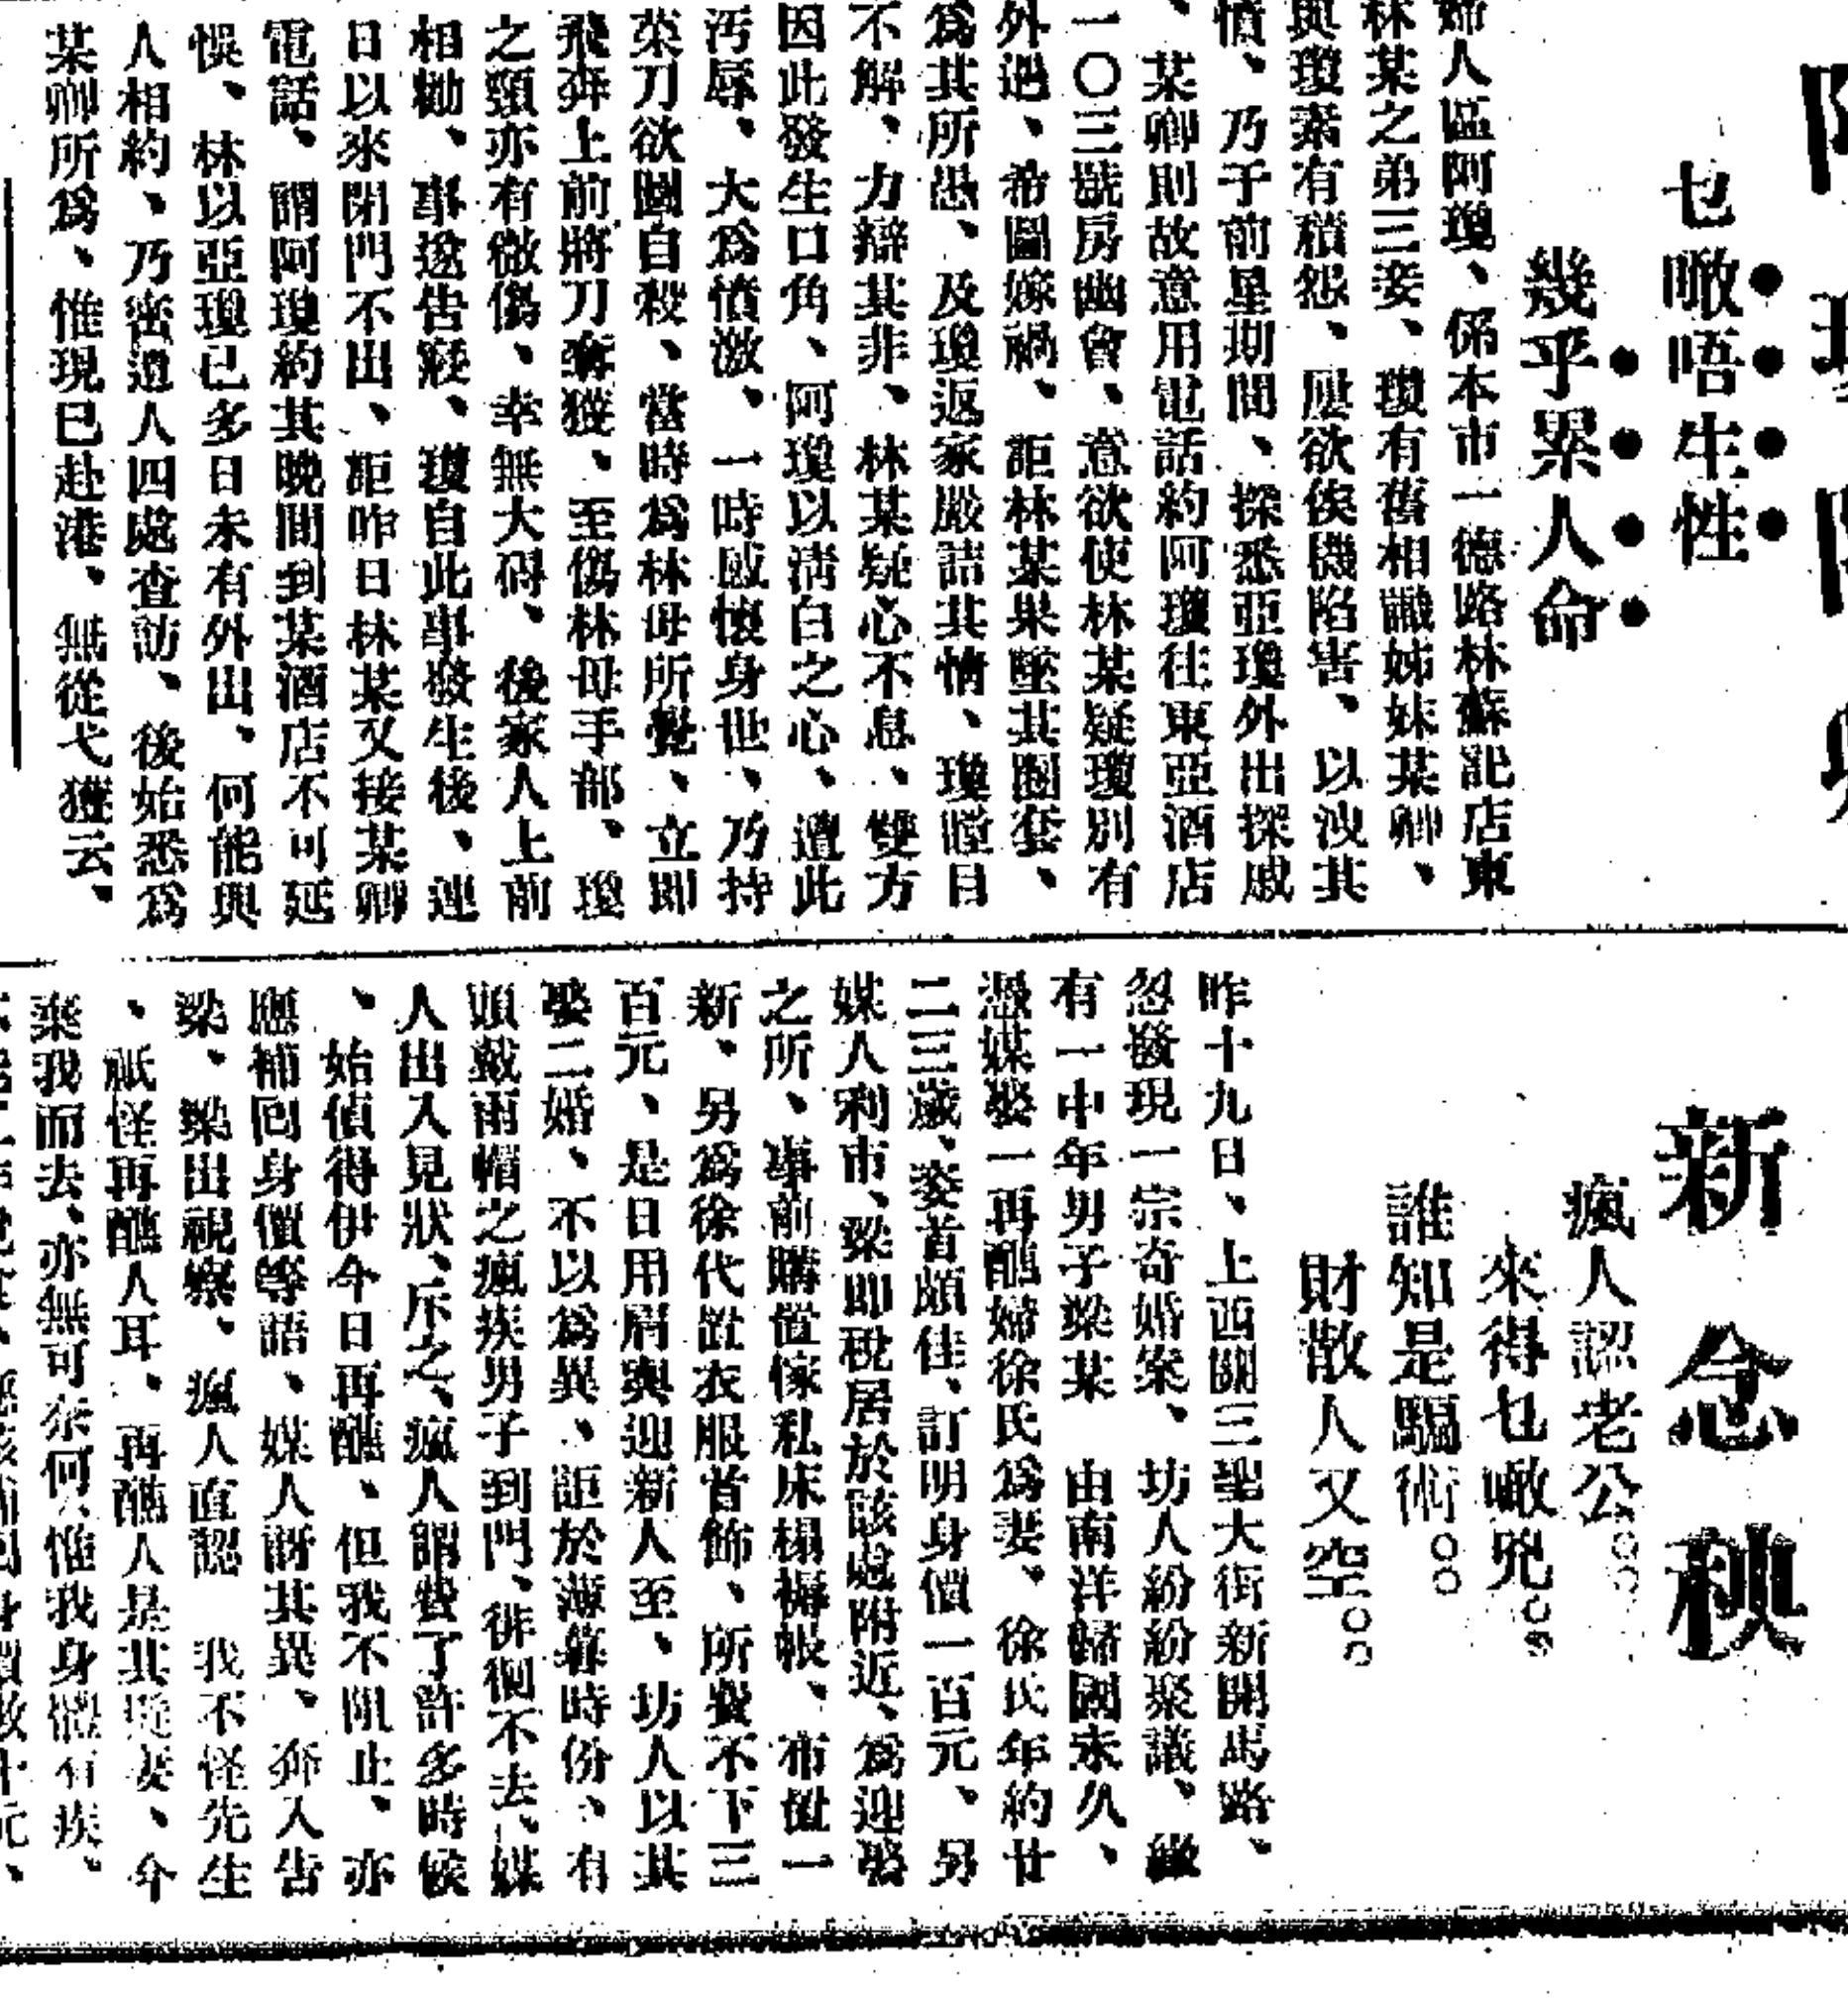 乜噉唔生性
幾乎累人命
婦人區阿瓊、係本市一德路林蘇記店東
林某之弟三妾、瓊有舊相識姊妹某卿、
與瓊素有積怨、屢欲俟機陷害、以洩其
憤、乃于前星期間、探悉亞瓊外出探戚
、某卿則故意用電話約阿瓊往東亞酒店
一〇三號房幽會、意欲使林某疑瓊別有
外遇、希圖嫁禍、詎林某果墜其圈套、
為其所愚、及瓊返家嚴詰其情、瓊瞠目
不解、力辯其非、林某疑心不息、雙方
因此發生口角、阿瓊以清白之心、遭此
污辱、大為憤激、一時感懷身世、乃持
菜刀欲圖自殺、當時為林母所覺、立即
飛奔上前將刀奪獲、至傷林母手部、瓊
之頸亦有微傷、幸無大碍、後家人上前
相勸、事遂告寢、瓊自此事發生後、連
日以來閉門不出、詎昨日林某又接某卿
電話、謂阿瓊約其晚間到某酒店不可延
悞、林以亞瓊已多日未有外出、何能與
人相約、乃密遣人四處查訪、後始悉為
某卿所為、惟現已赴港、無從弋獲云、
新念秧
瘋人認老公。。
來得乜噉兇。。
誰知是騙術。。
財散人又空。。
昨十九日、上西關三聖大街新開馬路、
忽發現一宗奇婚案、坊人紛紛聚議、緣
有一中年男子梁某 由南洋歸國未久、
憑媒娶一再醮婦徐氏為妻、徐氏年約廿
二三歲、姿首頗佳、訂明身價一百元、另
媒人利市、梁即稅居於該處附近、為迎娶
之所、事前購置傢私床榻褥帳、布置一
新、另為徐代置衣服首飾、所費不下三
百元、是日用肩輿迎新人至、坊人以其
娶二婚、不以為異、詎於薄暮時份、有
頭戴雨帽之瘋疾男子到門、徘徊不去、媒
人出入見狀、斥之、瘋人謂費了許多時候
、始偵得伊今日再醮、但我不阻止、亦
應補回身價等語、媒人訝其異、奔入告
梁、梁出視察、瘋人直認 我不怪先生
、祇怪再醮人耳、再醮人是其髮妻、今
棄我而去、亦無可奈何、惟我身體有疾、